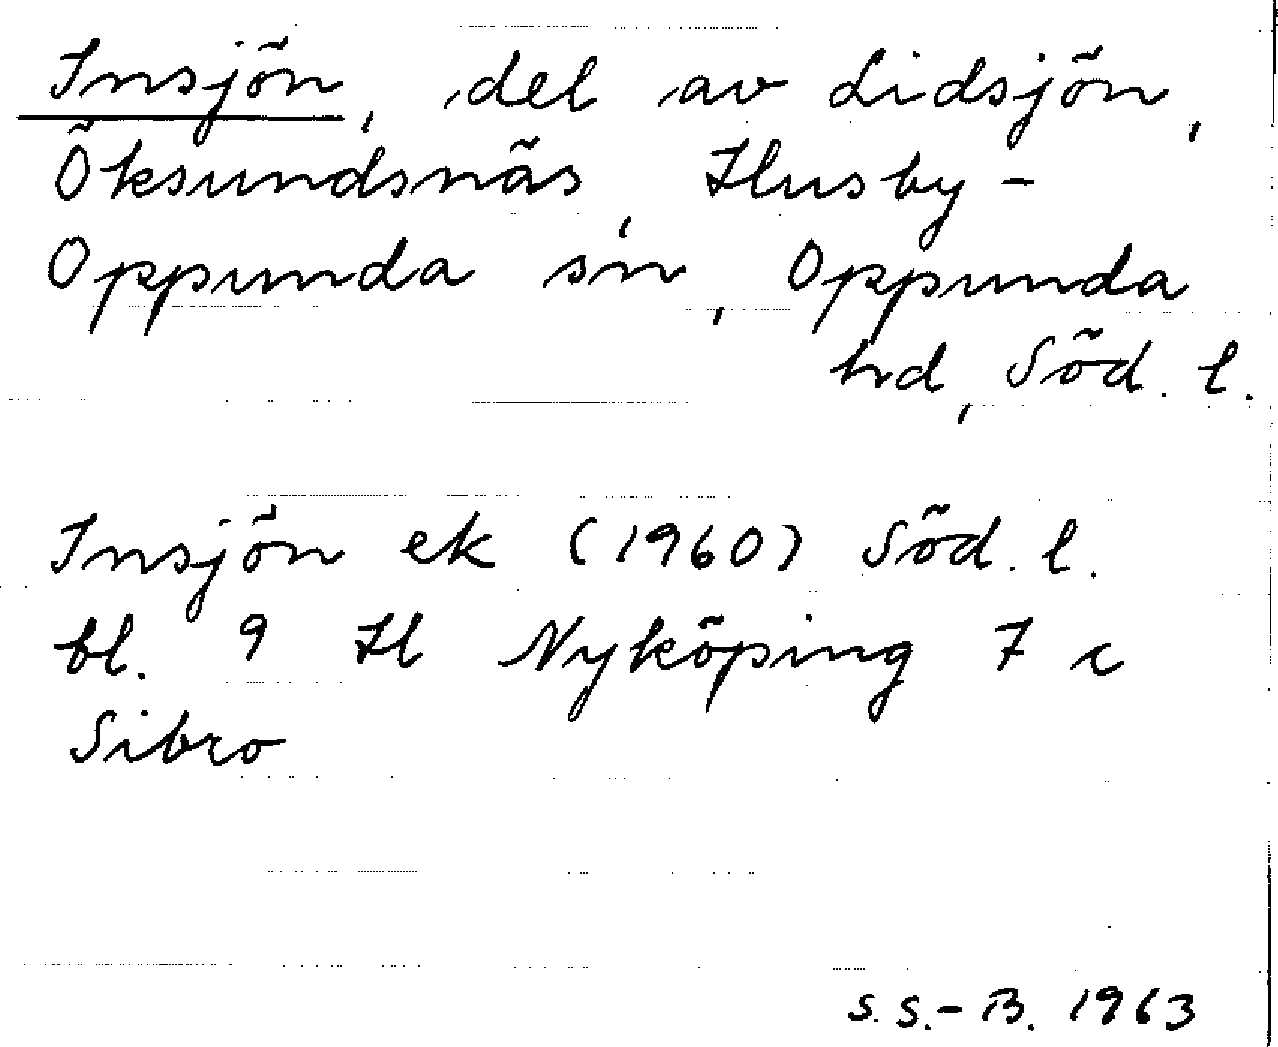 Insjön, del av Lidsjön,
Öksundsnäs, Husby-
Oppunda sn, Oppunda
hd, Söd. l.
Insjön ek (1960) Söd. l.
bl. 9 H Nyköping 7 c
Sibro
S. S.-B. 1963